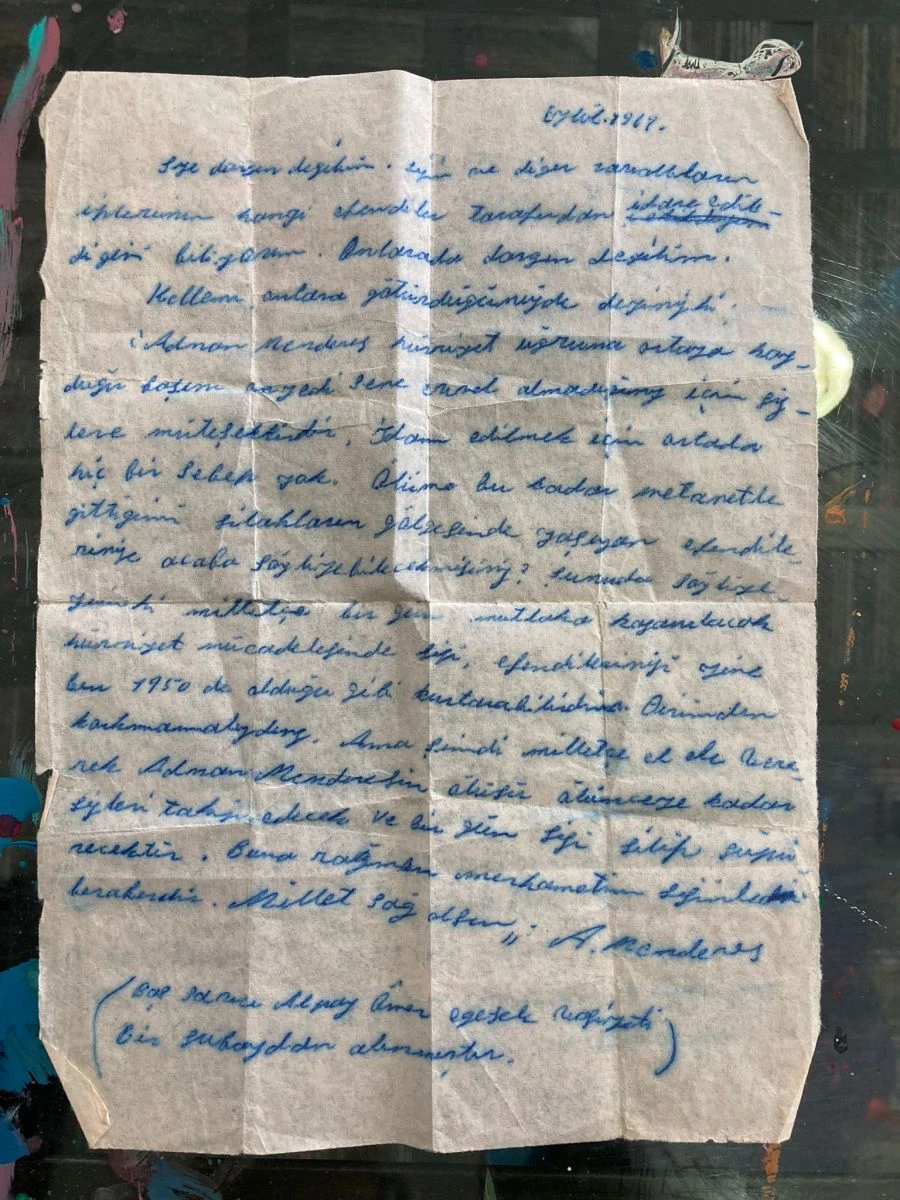 Eylül.1961.
Size dargın değilim. Sizin ve diğer zavallıların
iplerinin hangi efendiler tarafından idare edil-
diğini biliyorum. Onlarada dargın değilim.
Kellemi onlara götürdüğünüzde deyiniz ki;
Adnan Menderes hürriyet uğruna ortaya koy-
duğu başını onyedi sene evvel almadığınız için siz-
lere müteşekkirdir. İdam edilmek için ortada
hiç bir sebeb yok. Ölüme bu kadar metanetle
gittiğimi silahların gölgesinde yaşayan efendile-
rinize acaba söyliyebilecekmisiniz? Şunuda söyliye-
yimki milletçe bir gün mutlaka kazanılacak
hürriyet mücadelesinde sizi, efendilerinizi yine
ben 1950 de olduğu gibi kurtarabilirdim. Dirimden
korkmamalıydınız. Ama şimdi milletçe el ele vere-
rek Adnan Menderesin ölüsü ölünceye kadar
sizleri takip edecek ve bir gün sizi silip süpü
recektir. Buna rağmen merhametim sizinle
beraberdir. Millet sağ olsun,,
A. Menderes
(Baş savcı Altay Ömer Egesel
Bir subaydan alınmıştır.)